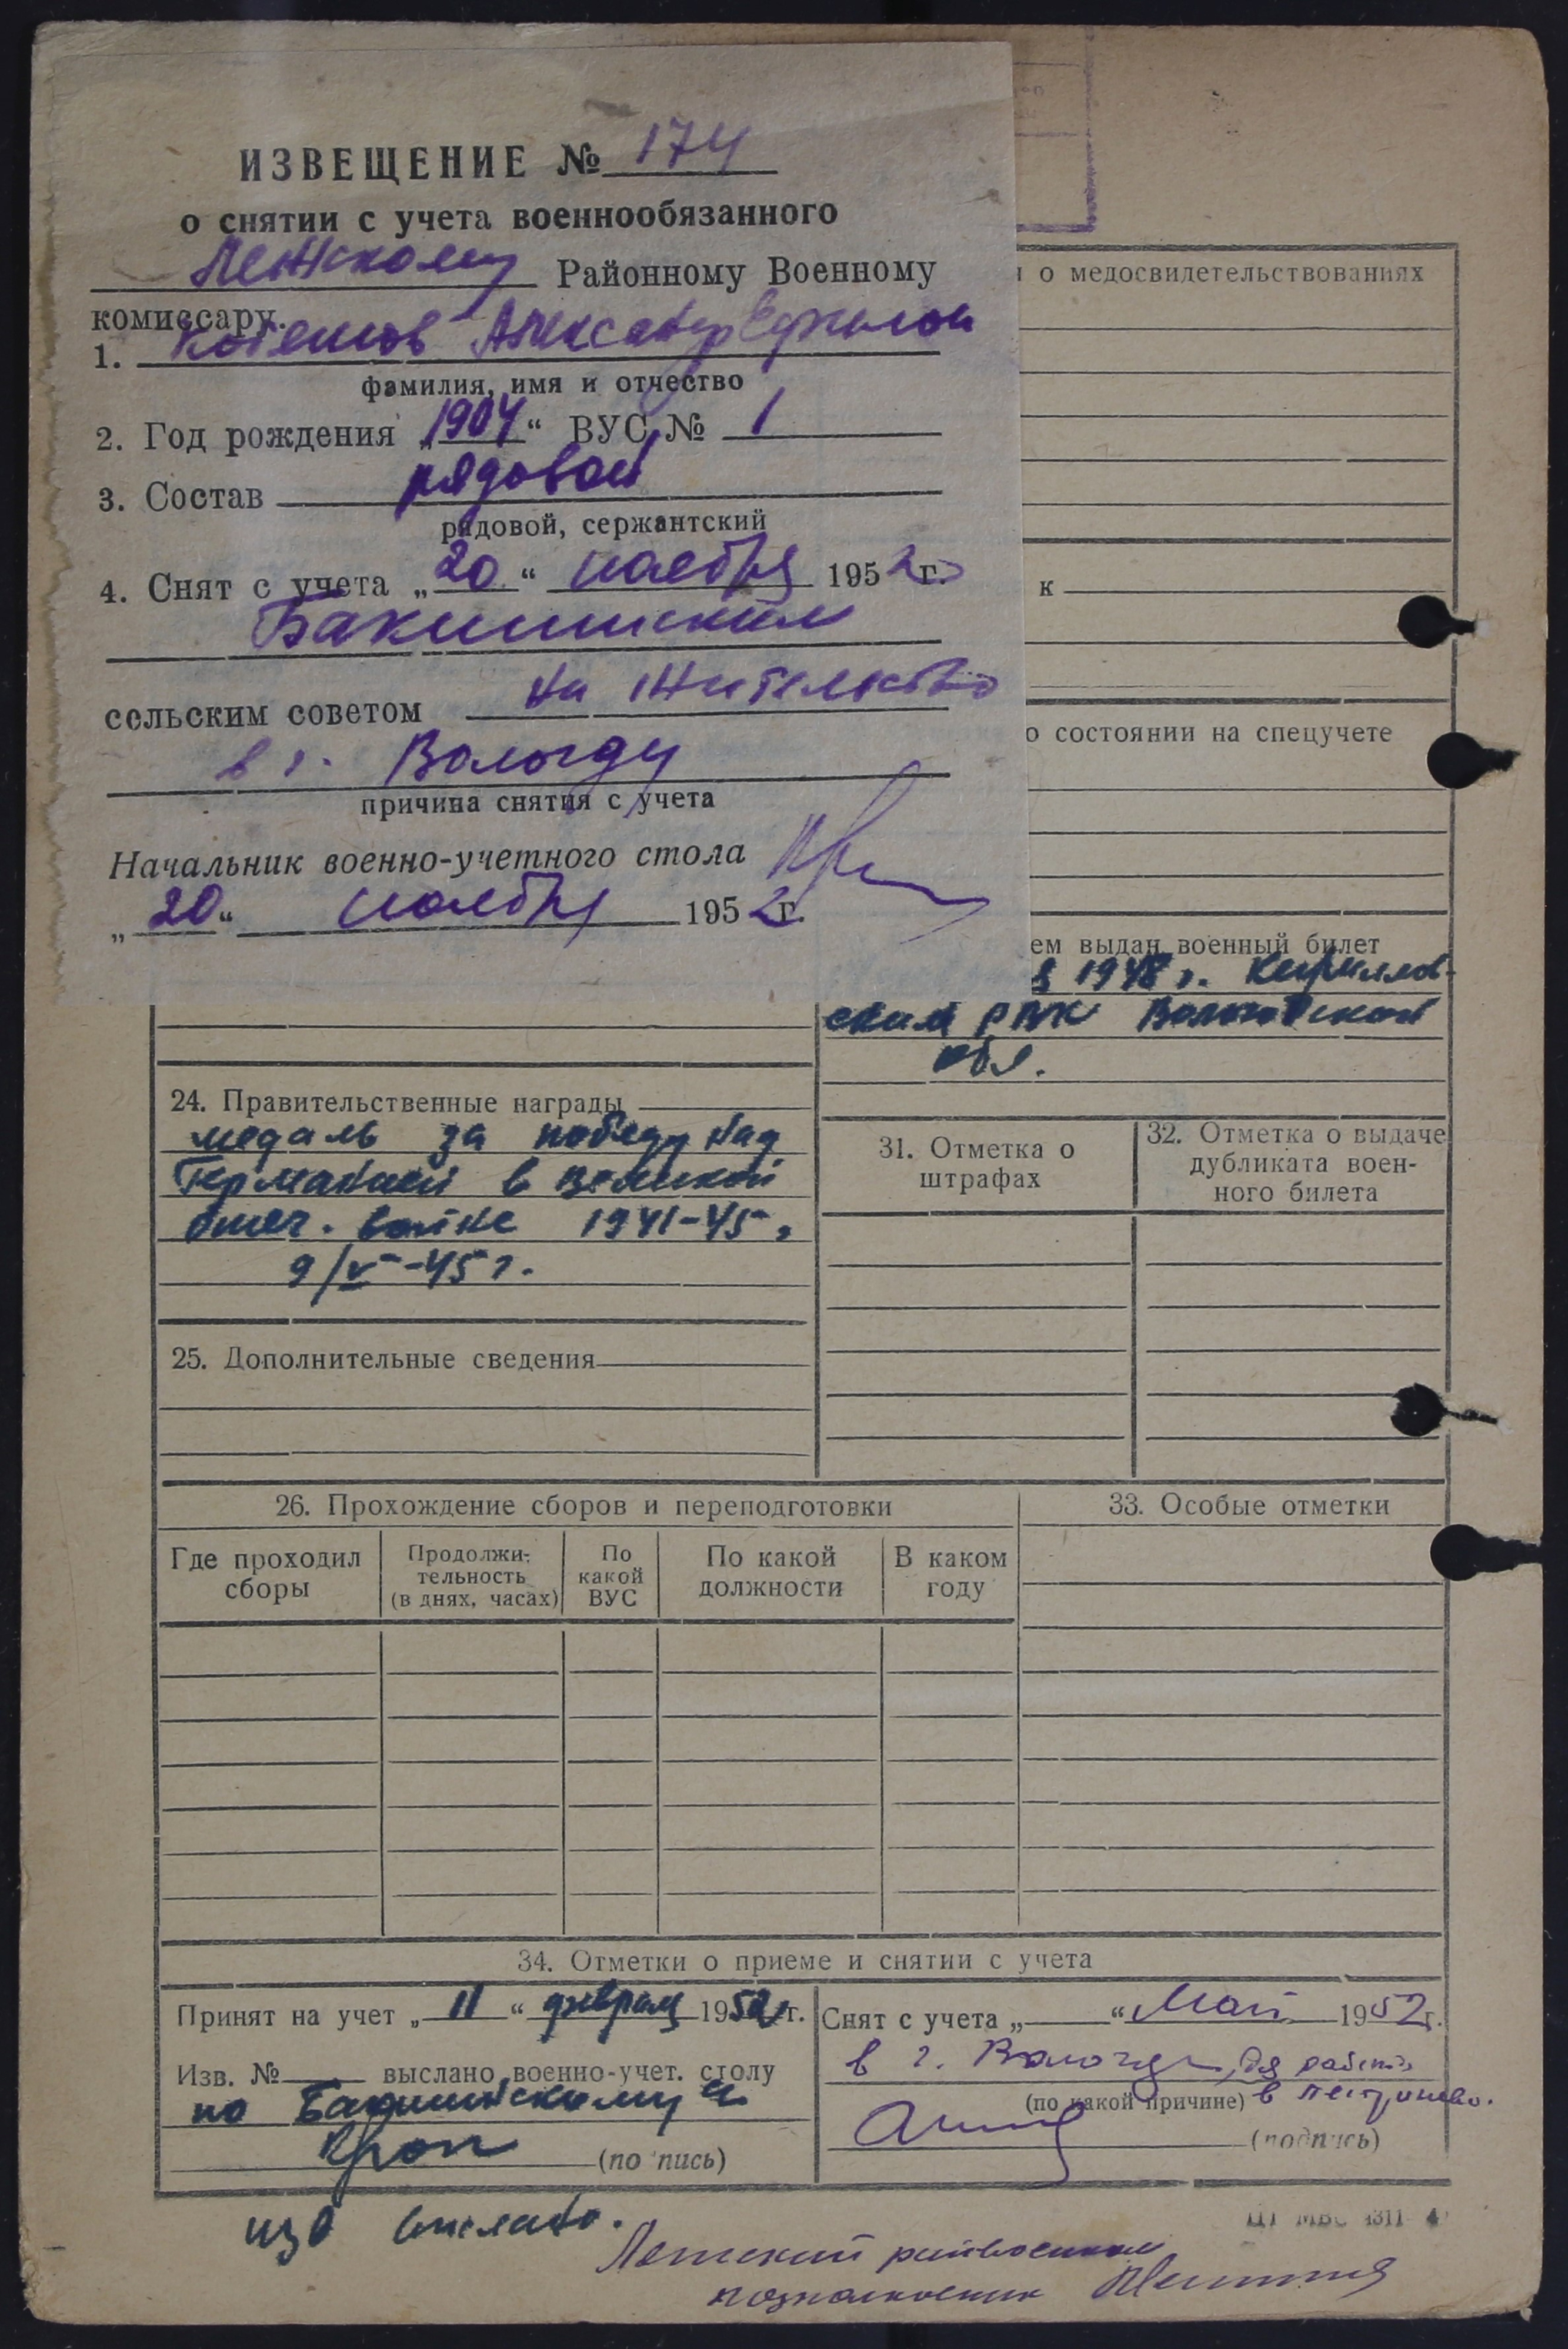 ИЗВЕЩЕНИЕ № 174
о снятии с учета военнообязанного
Районному Военному
комиссару.
1. Александр
фамилия, имя и отчество
2. Год рождения „1904“ ВУС № 1
3. Состав рядовой
рядовой, сержантский
4. Снят с учета „20“ ноября 1952 г.
сельским советом на жительство
в г. Вологду
причина снятия с учета
Начальник военно-учетного стола
„20“ ноября 1952 г.
о медосвидетельствованиях
к
о состоянии на спецучете
ем выдан военный билет
1948 г. Кириллов-
ским РВК Вологодской
обл.
24. Правительственные награды
медаль за победу над
Германией в Великой
отеч. войне 1941-45 г.
9/V-45 г.
31. Отметка о
штрафах
32. Отметка о выдаче
дубликата воен-
ного билета
25. Дополнительные сведения
26. Прохождение сборов и переподготовки
33. Особые отметки
Где проходил
сборы
Продолжи-
тельность
(в днях, часах)
По
какой
ВУС
По какой
должности
В каком
году
34. Отметки о приеме и снятии с учета
Принят на учет „11“ февраля 1952 г.
Изв. № выслано военно-учет. столу
по
(подпись)
изв выслано.
Снят с учета „ “ Май 1952 г.
в г. Вологду
(по какой причине) в
(подпись)
подполковник